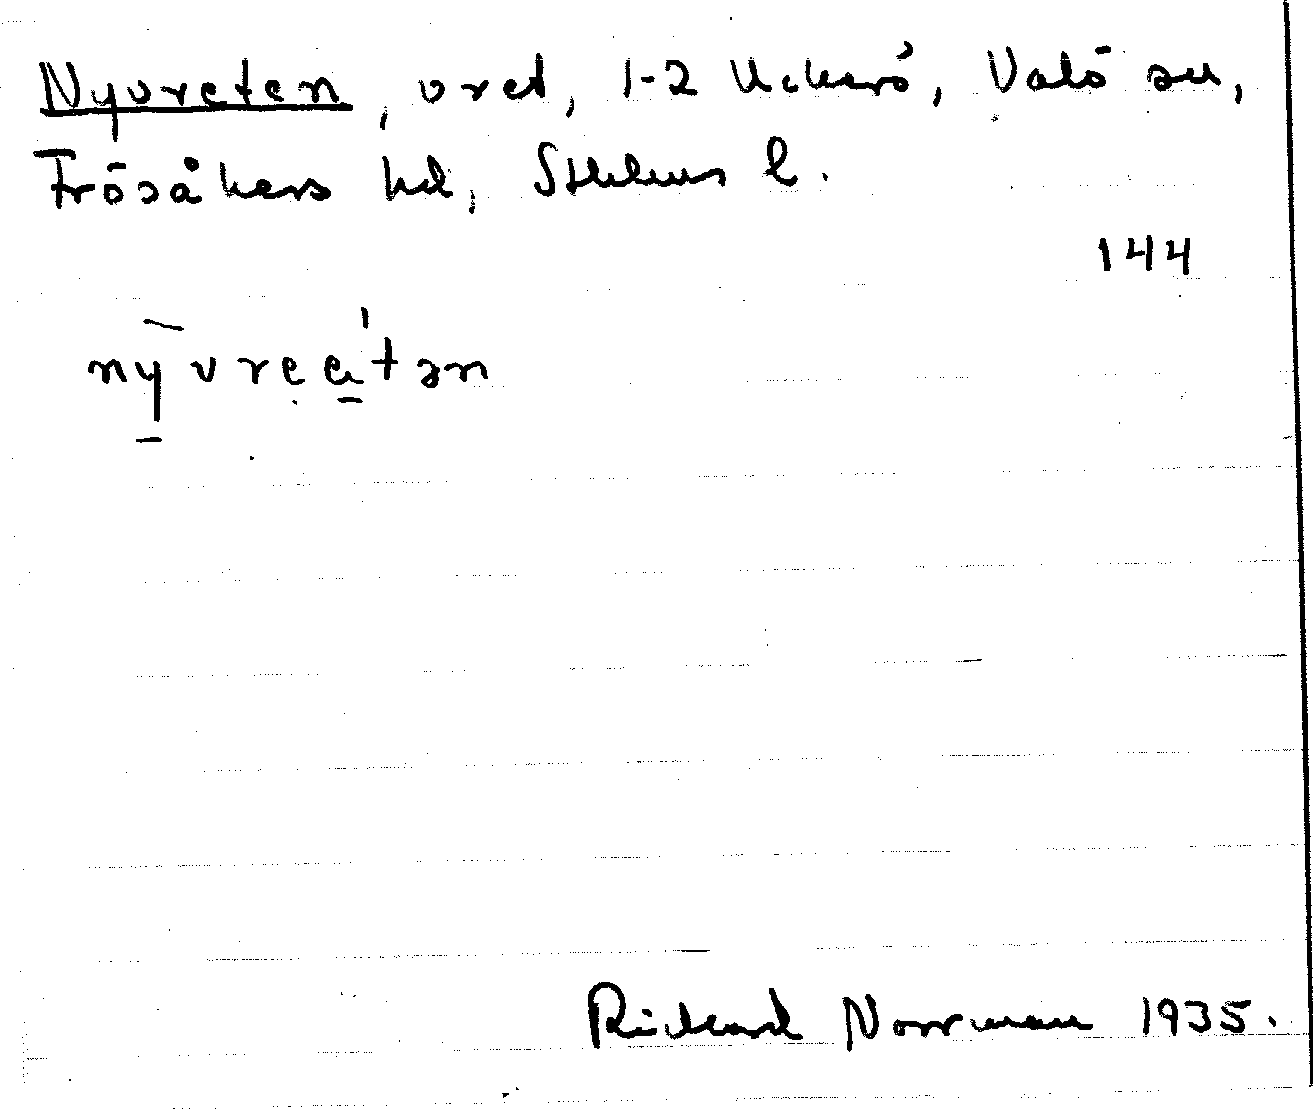 Nyvreten, vret, 1-2 Uckerö, Valö sn,
Frösåkers hd, Sthlms l.
144
nyvreetən
Richard Norrman 1935.